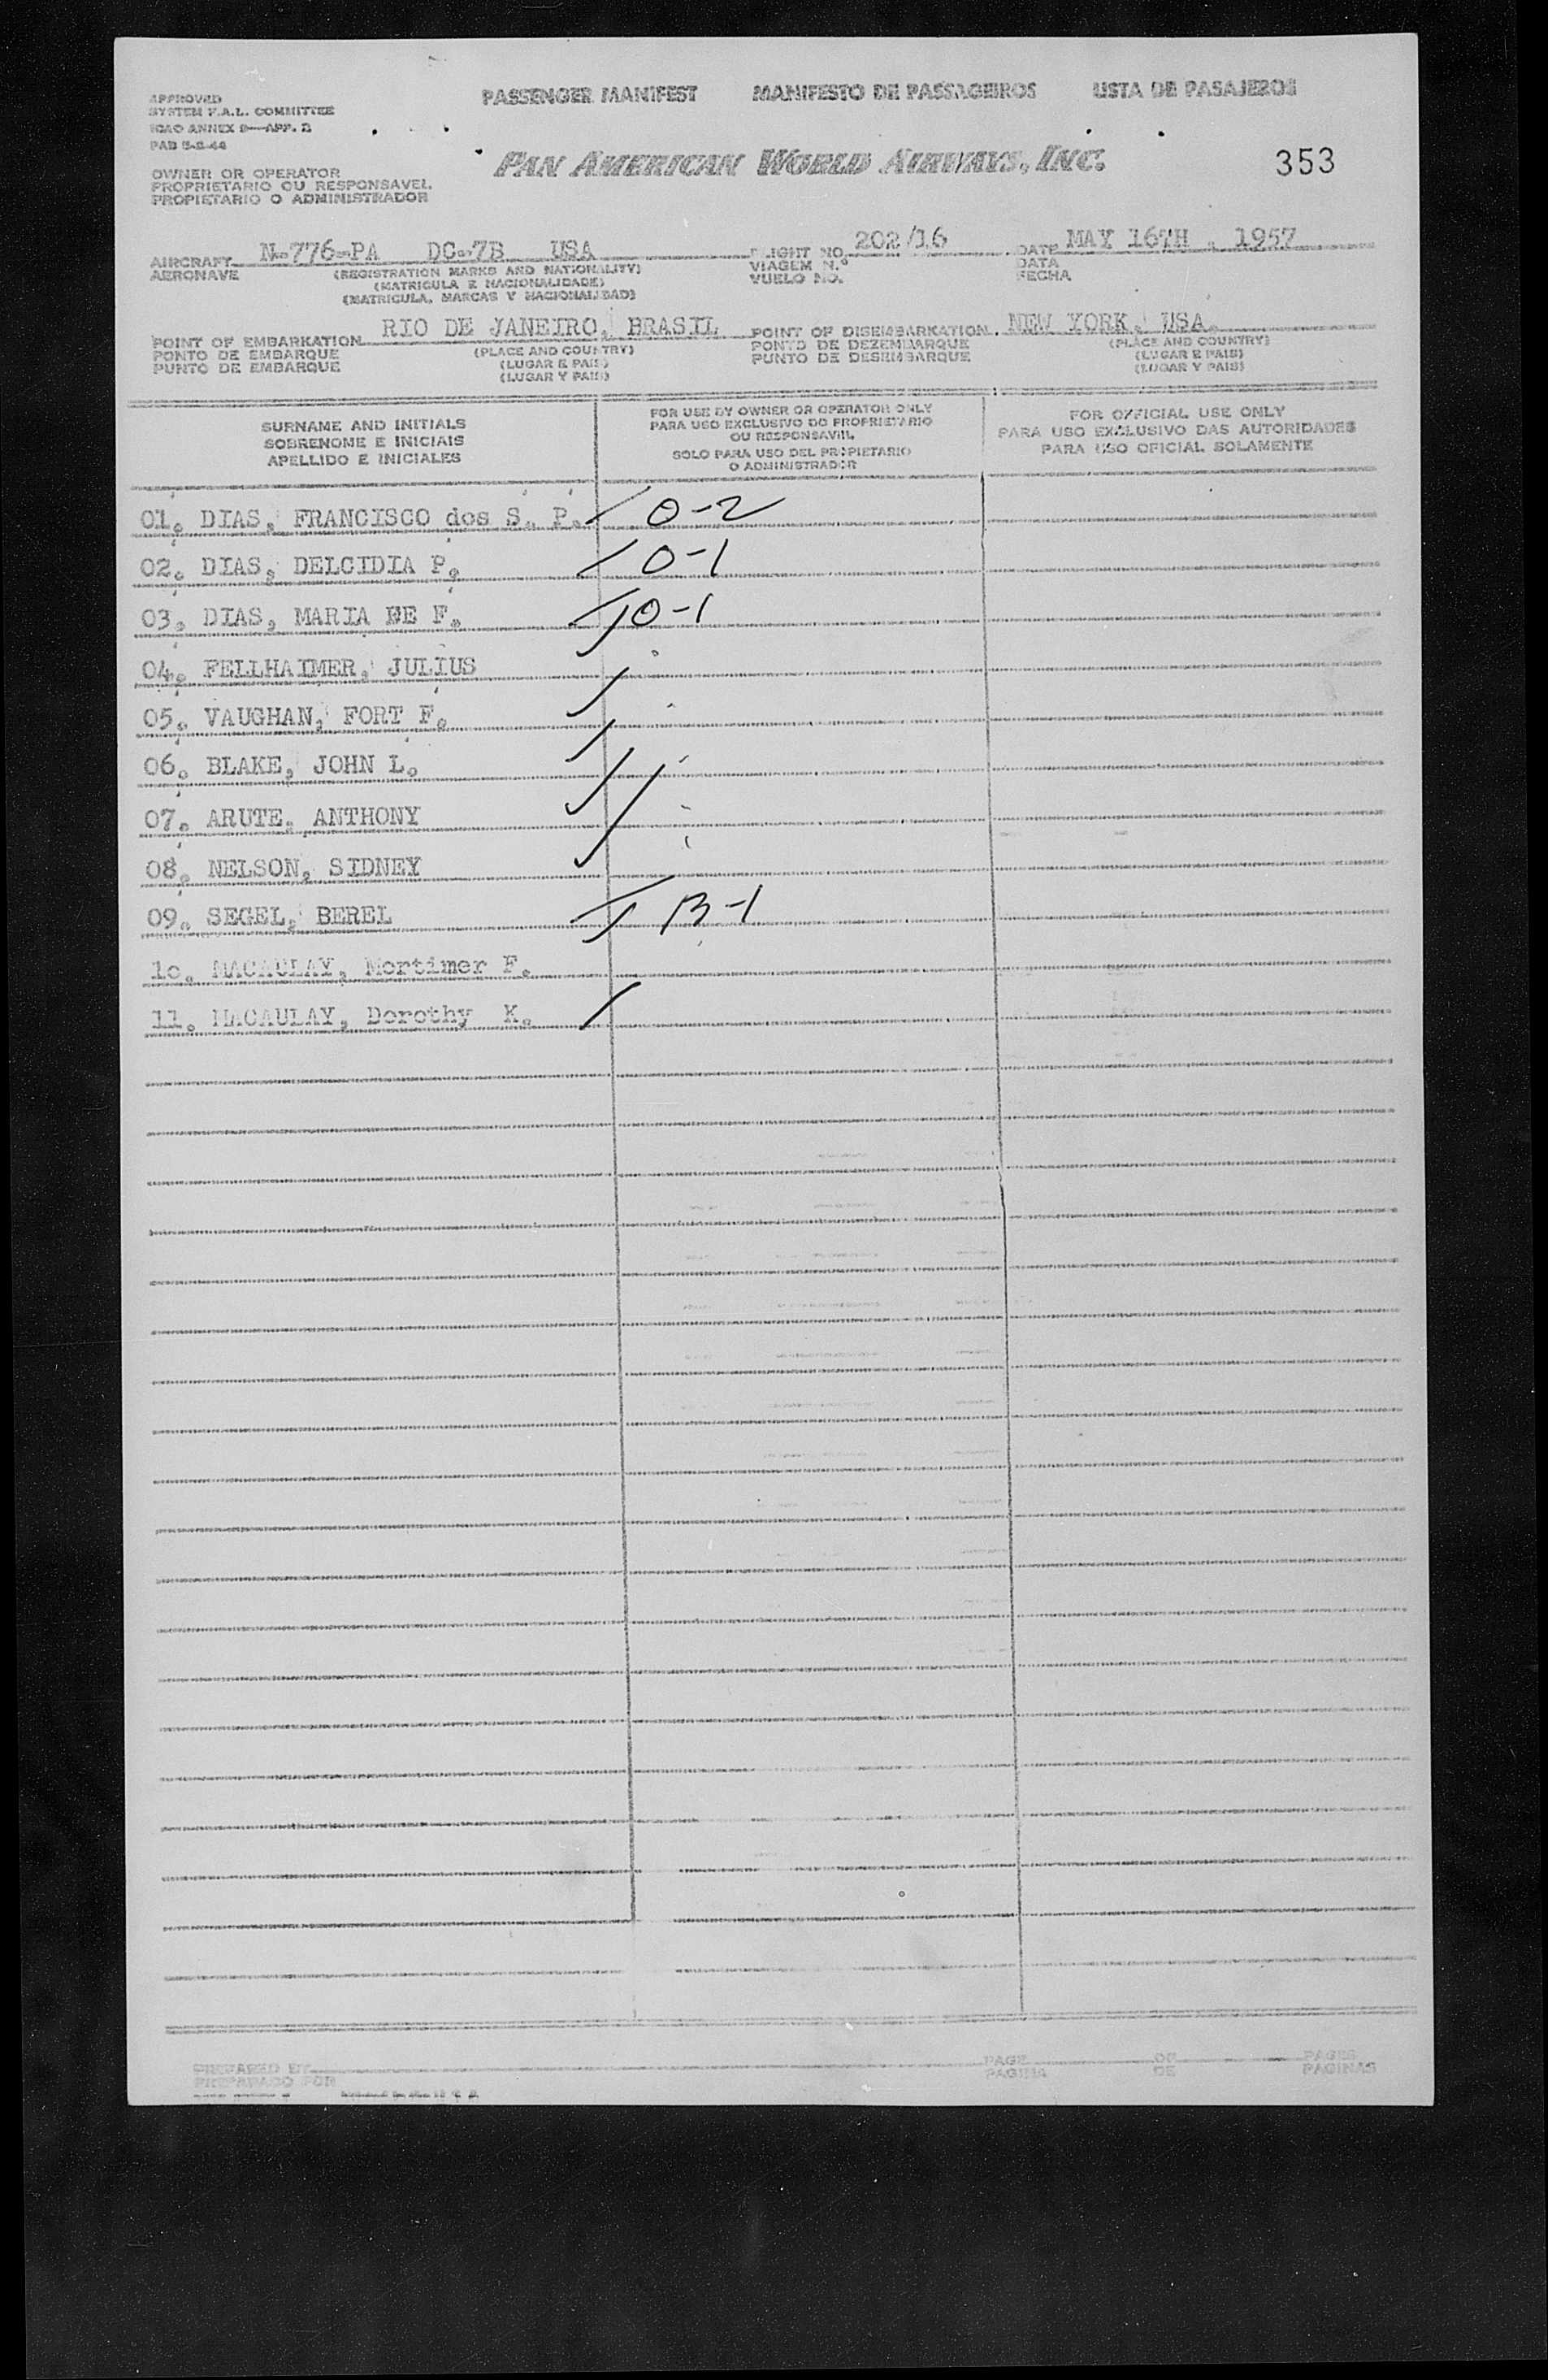 PASSENGER MANIFEST MANIFESTO DE PASSAGEIROS LISTA DE PASAJEROS
APPROVED
SYSTEM F.A.L. COMMITTEE
ICAO ANNEX 9—APP. 2
PAN AMERICAN WORLD AIRWAYS, INC.
353
OWNER OR OPERATOR
PROPRIETARIO OU RESPONSAVEL
PROPIETARIO O ADMINISTRADOR
AIRCRAFT N-776-PA DC-7B USA FLIGHT NO. 202/16 DATE MAY 16TH , 1957
AERONAVE (REGISTRATION MARKS AND NATIONALITY) VIAGEM N.º DATA
(MATRICULA E NACIONALIDADE) VUELO NO. FECHA
(MATRICULA, MARCAS Y NACIONALIDAD)
POINT OF EMBARKATION RIO DE JANEIRO, BRASIL POINT OF DISEMBARKATION NEW YORK, USA.
PONTO DE EMBARQUE (PLACE AND COUNTRY) PONTO DE DEZEMBARQUE (PLACE AND COUNTRY)
PUNTO DE EMBARQUE (LUGAR E PAIS) PUNTO DE DESEMBARQUE (LUGAR E PAIS)
(LUGAR Y PAIS) (LUGAR Y PAIS)
SURNAME AND INITIALS
SOBRENOME E INICIAIS
APELLIDO E INICIALES
FOR USE BY OWNER OR OPERATOR ONLY
PARA USO EXCLUSIVO DO PROPRIETARIO
OU RESPONSAVEL
SOLO PARA USO DEL PROPIETARIO
O ADMINISTRADOR
FOR OFFICIAL USE ONLY
PARA USO EXCLUSIVO DAS AUTORIDADES
PARA USO OFICIAL SOLAMENTE
01. DIAS, FRANCISCO dos S. P. 0-2
02. DIAS, DELCIDIA P. 0-1
03. DIAS, MARIA DE F. 0-1
04. FELLHAIMER, JULIUS
05. VAUGHAN, FORT F.
06. BLAKE, JOHN L.
07. ARUTE, ANTHONY
08. NELSON, SIDNEY
09. SEGEL, BEREL B-1
1o. MACAULAY, Mortimer F.
11. MACAULAY, Dorothy K.
PREPARED BY PAGE OF PAGES
PREPARADO POR PAGINA DE PAGINAS